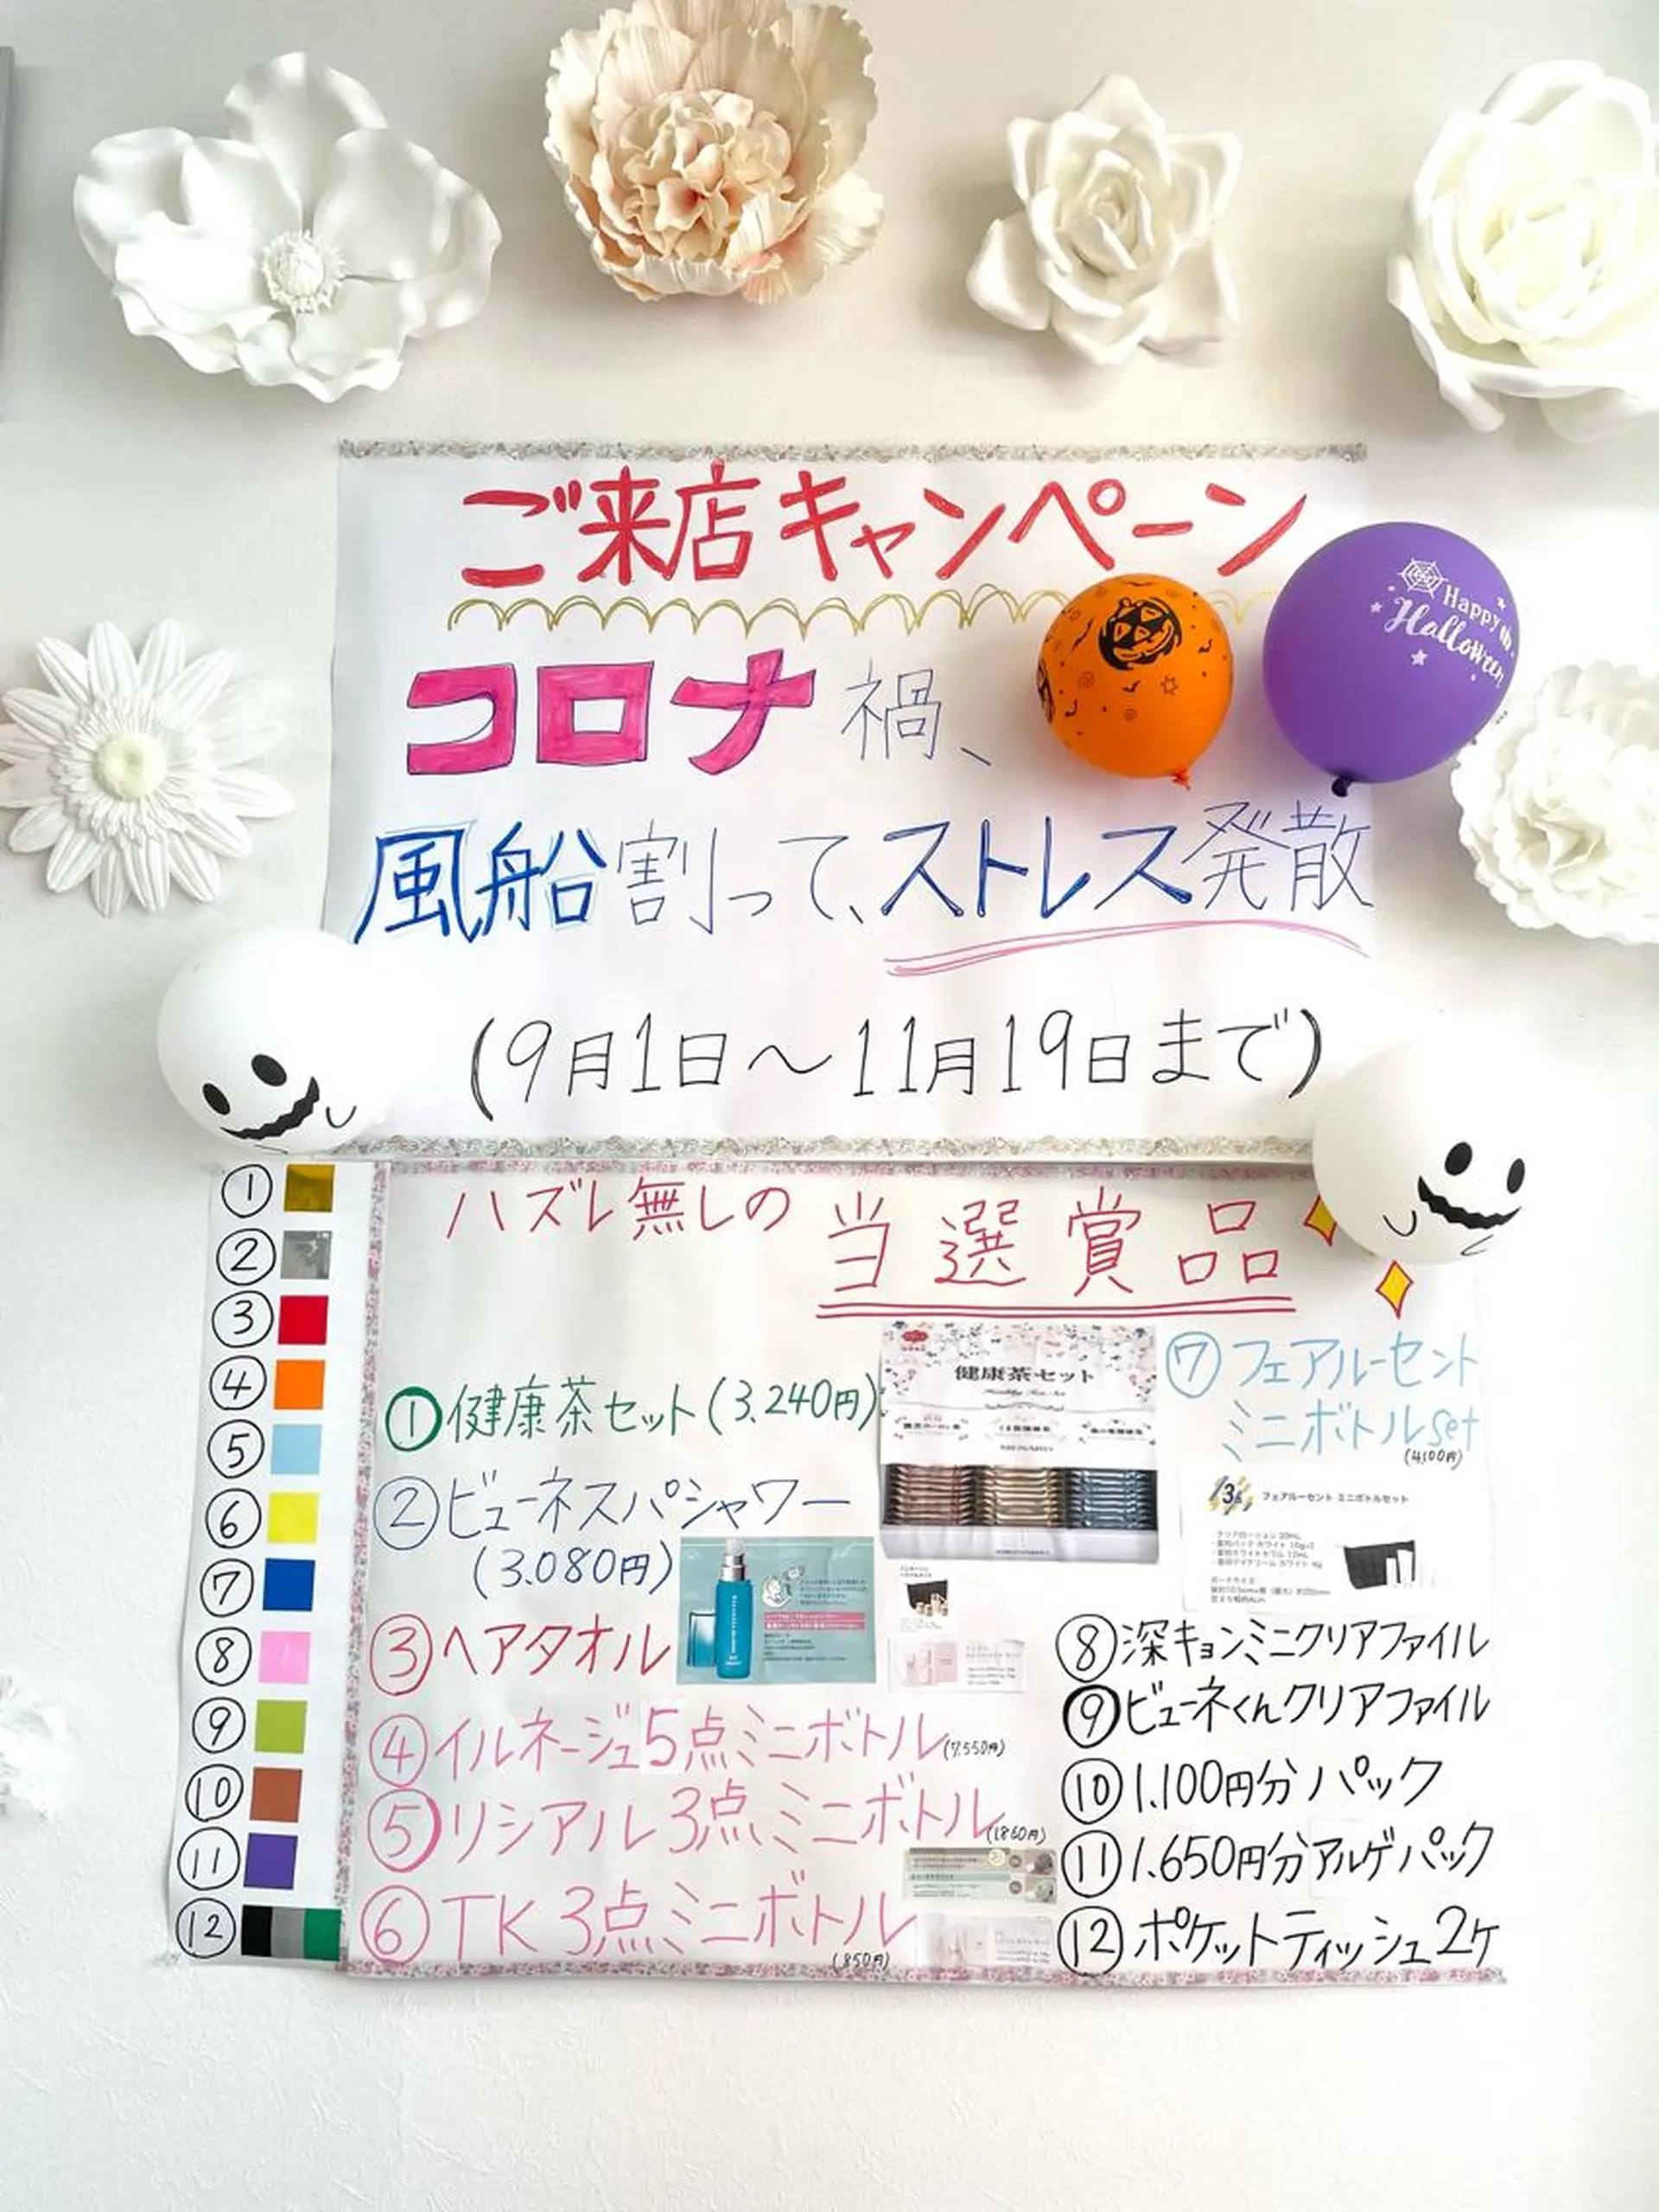 ご来店キャンペーン
Happy
Halloween
コロナ禍、
風船割って、ストレス発散
(9月1日～11月19日まで)
ハズレ無しの当選賞品
①
②
③
④
⑤
⑥
⑦
⑧
⑨
⑩
⑪
⑫
①健康茶セット(3.240円)
②ビューネスパシャワー
(3.080円)
③ヘアタオル
④イルネージュ5点ミニボトル(7.550円)
⑤リシアル3点ミニボトル(1.860円)
⑥TK 3点ミニボトル
(850円)
健康茶セット
⑦フェアルーセント
ミニボトルset
(4.100円)
フェアルーセント ミニボトルセット
⑧深キョンミニクリアファイル
⑨ビューネくんクリアファイル
⑩1.100円分パック
⑪1.650円分アルゲパック
⑫ポケットティッシュ2ケ